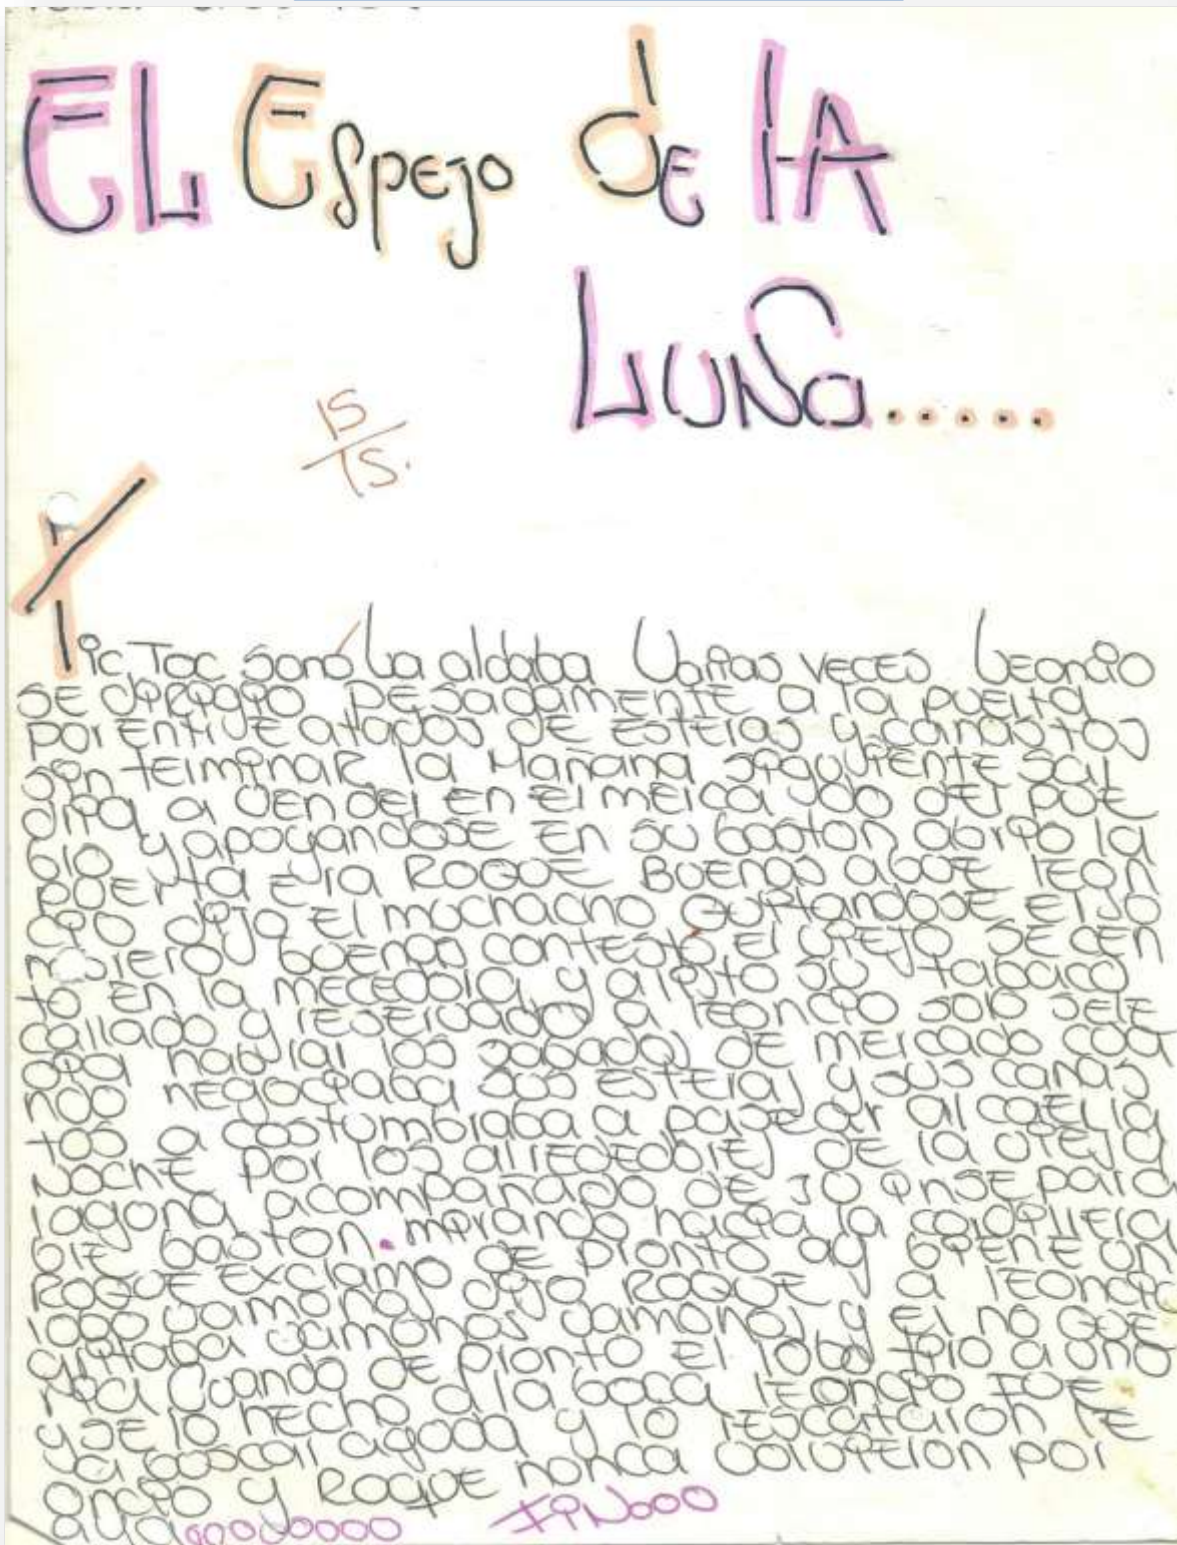 EL Espejo de la
Luna.....
15
15.
Tic Toc sonó La aldaba Varias veces Leoncio
se dirigio pesadamente a la puerta
por entre atados de esteras y canastos
sin terminar la Mañana siguiente sal
dria a vender en el mercado del pue
blo y apoyandose en su baston abrio la
puerta era Roque Buenas abue leon
cio dijo el muchacho quitandose el so
mbrero buenas contestó el viejo se cen
to en la mecedora y alisto su tabaco
callado y reservado a leoncio solo sele
oia hablar los sabados de mercado cua
ndo negociaba sus esteras y sus canas
tos a costumbraba a pasear al caer la
Noche por los alrededores de la vieja
laguna acompañado de su insepara
ble baston. mirando hacia la
Roque exclamo de pronto ay biene un
lobo bamonos dijo Roque y a leoncio
gritaba vamonos vamonos y el no que
ria Cuando de pronto el lobo
y se lo hecho a la boca leoncio fue
a buscar aguda y lo rescataron le
oncio y Roque nonca volvieron por
aya
FIN